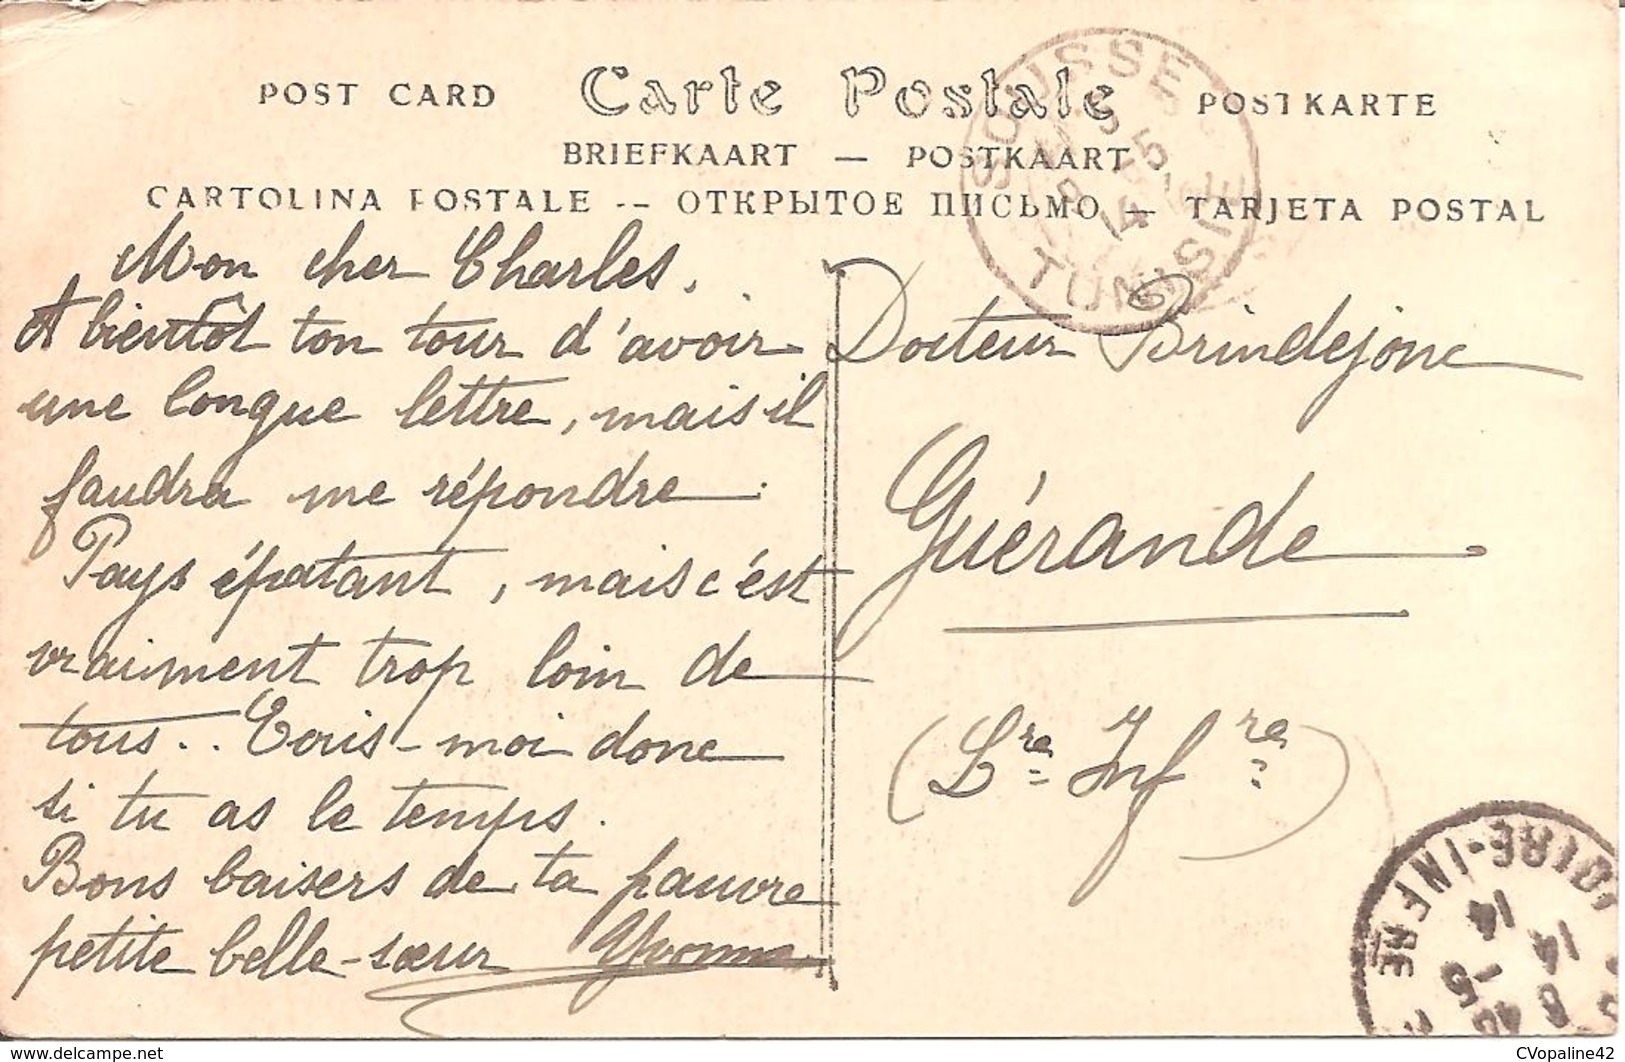 POST CARD Carte Postale POSTKARTE
BRIEFKAART — POSTKAART
CARTOLINA POSTALE -- ОТКРЫТОЕ ПИСЬМО — TARJETA POSTAL
SOUSSE
TUNISIE
Mon cher Charles.
A bientôt ton tour d'avoir
une longue lettre, mais il
faudra me répondre.
Pays épatant, mais c'est
vraiment trop loin de
tous.. Ecris-moi donc
si tu as le temps.
Bons baisers de ta pauvre
petite belle-sœur Yvonne
Docteur Brindejonc
Guérande
(Lre Infre)
LOIRE-INFRE
14
CVopaline42